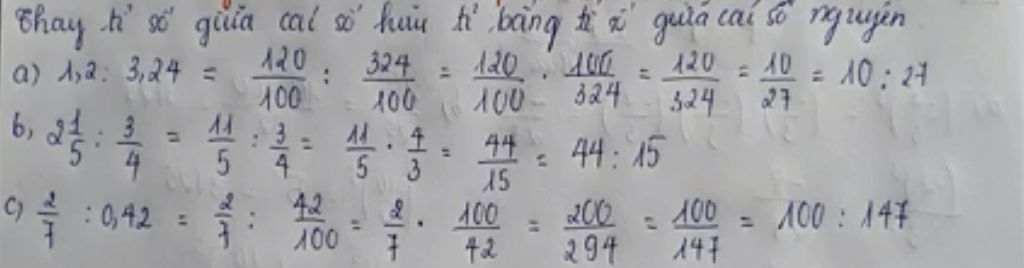 Thay tỉ số giữa các số hữu tỉ bằng tỉ số giữa các số nguyên
a) 1,2 : 3,24 = 120/100 : 324/100 = 120/100 . 100/324 = 120/324 = 10/27 = 10 : 27
b, 2 1/5 : 3/4 = 11/5 : 3/4 = 11/5 . 4/3 = 44/15 = 44 : 15
c) 2/7 : 0,42 = 2/7 : 42/100 = 2/7 . 100/42 = 200/294 = 100/147 = 100 : 147